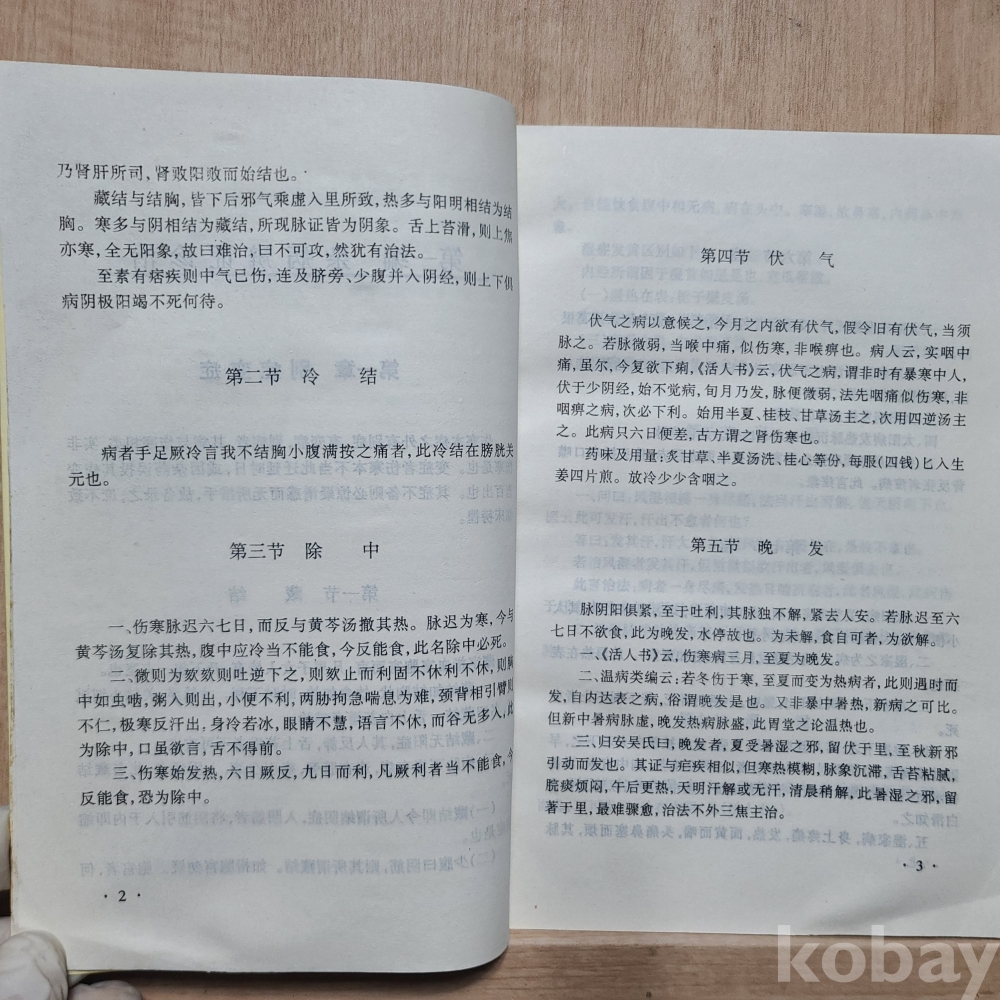 乃肾肝所司，肾败阳败而始结也。
藏结与结胸，皆下后邪气乘虚入里所致，热多与阳明相结为结
胸。寒多与阴相结为藏结，所现脉证皆为阴象。舌上苔滑，则上焦
亦寒，全无阳象，故曰难治，曰不可攻，然犹有治法。
至素有痞疾则中气已伤，连及脐旁、少腹并入阴经，则上下俱
病阴极阳竭不死何待。
第二节 冷 结
病者手足厥冷言我不结胸小腹满按之痛者，此冷结在膀胱关
元也。
第三节 除 中
一、伤寒脉迟六七日，而反与黄芩汤撤其热。脉迟为寒，今与
黄芩汤复除其热，腹中应冷当不能食，今反能食，此名除中必死。
二、微则为欬欬则吐逆下之，则欬止而利固不休利不休，则胸
中如虫啮，粥入则出，小便不利，两胁拘急喘息为难，颈背相引臂则
不仁，极寒反汗出，身冷若冰，眼睛不慧，语言不休，而谷无多入，此
为除中，口虽欲言，舌不得前。
三、伤寒始发热，六日厥反，九日而利，凡厥利者当不能食，今
反能食，恐为除中。
· 2 ·
第四节 伏 气
伏气之病以意候之，今月之内欲有伏气，假令旧有伏气，当须
脉之。若脉微弱，当喉中痛，似伤寒，非喉痹也。病人云，实咽中
痛，虽尔，今复欲下痢，《活人书》云，伏气之病，谓非时有暴寒中人，
伏于少阴经，始不觉病，旬月乃发，脉便微弱，法先咽痛似伤寒，非
咽痹之病，次必下利。始用半夏、桂枝、甘草汤主之，次用四逆汤主
之。此病只六日便差，古方谓之肾伤寒也。
药味及用量：炙甘草、半夏汤洗、桂心等份，每服(四钱)匕入生
姜四片煎。放冷少少含咽之。
第五节 晚 发
脉阴阳俱紧，至于吐利，其脉独不解，紧去人安。若脉迟至六
七日不欲食，此为晚发，水停故也。为未解，食自可者，为欲解。
一、《活人书》云，伤寒病三月，至夏为晚发。
二、温病类编云：若冬伤于寒，至夏而变为热病者，此则遇时而
发，自内达表之病，俗谓晚发是也。又非暴中暑热，新病之可比。
但新中暑病脉虚，晚发热病脉盛，此胃堂之论温热也。
三、归安吴氏曰，晚发者，夏受暑湿之邪，留伏于里，至秋新邪
引动而发也。其证与疟疾相似，但寒热模糊，脉象沉滞，舌苔粘腻，
脘痰烦闷，午后更热，天明汗解或无汗，清晨稍解，此暑湿之邪，留
著于里，最难骤愈，治法不外三焦主治。
· 3 ·
kobay